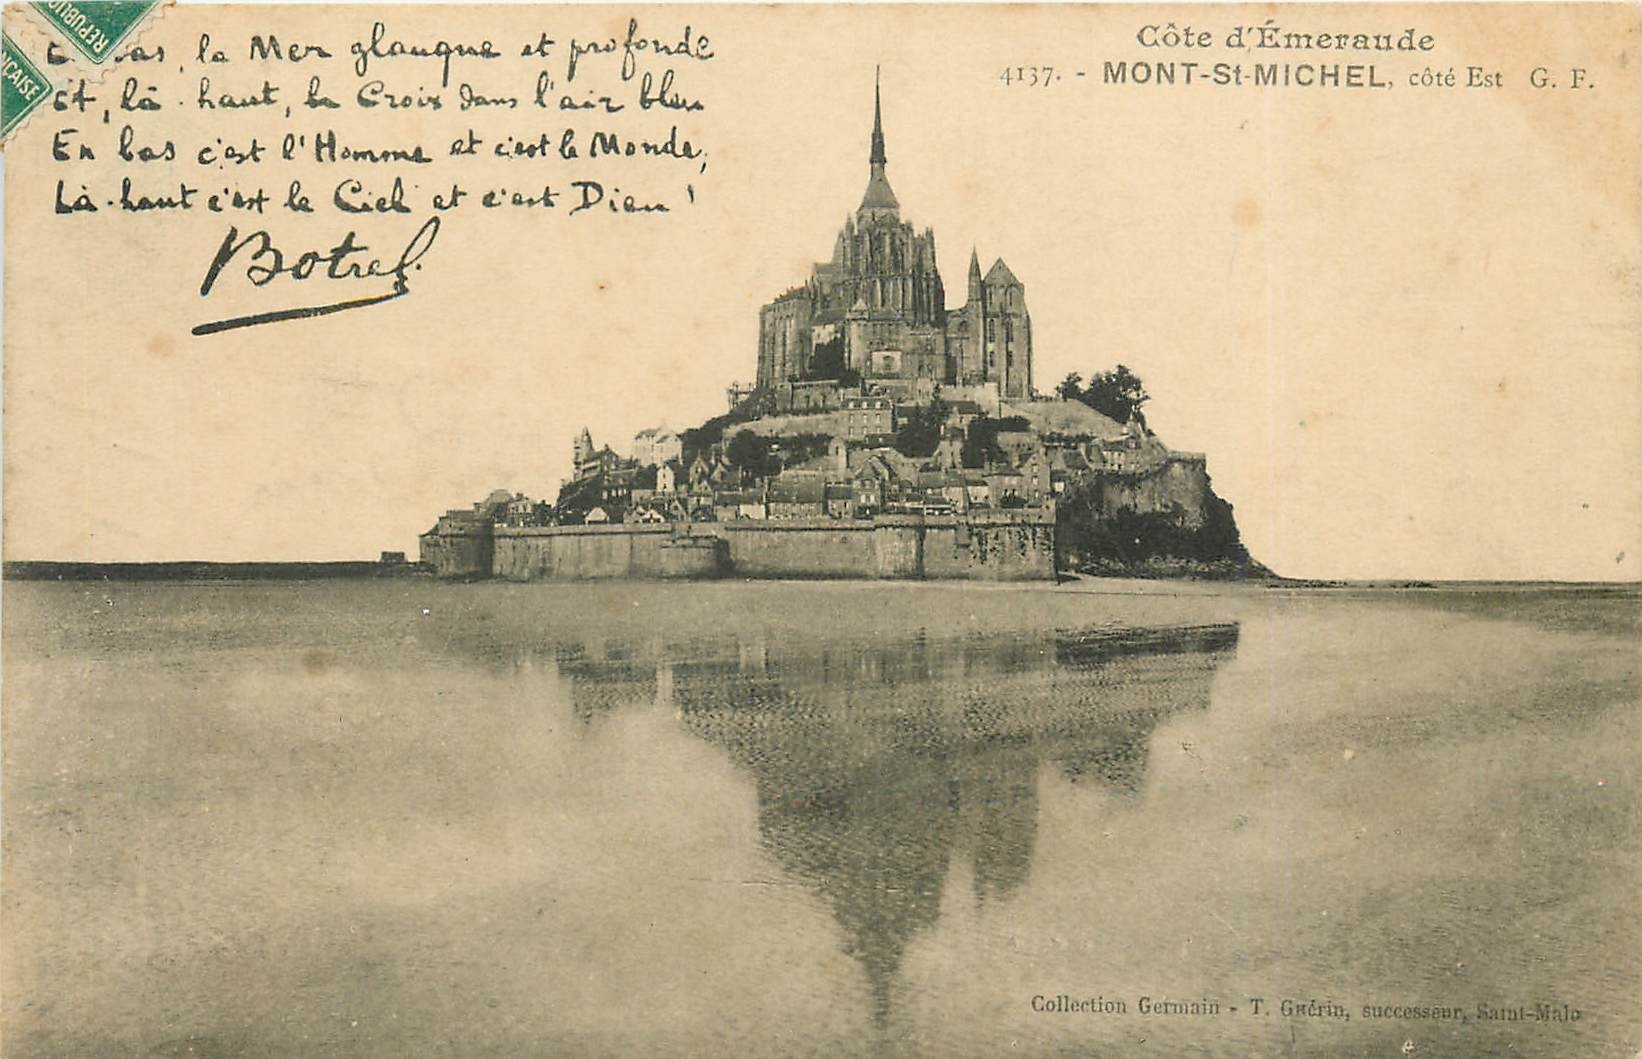 RÉPUBLIQ
NÇAISE
En bas, la Mer glauque et profonde
Et, là-haut, la Croix dans l'air bleu
En bas c'est l'Homme et c'est le Monde,
Là-haut c'est le Ciel et c'est Dieu !
Botrel.
Côte d'Émeraude
4137. - MONT-St-MICHEL, côté Est G. F.
Collection Germain - T. Guérin, successeur, Saint-Malo